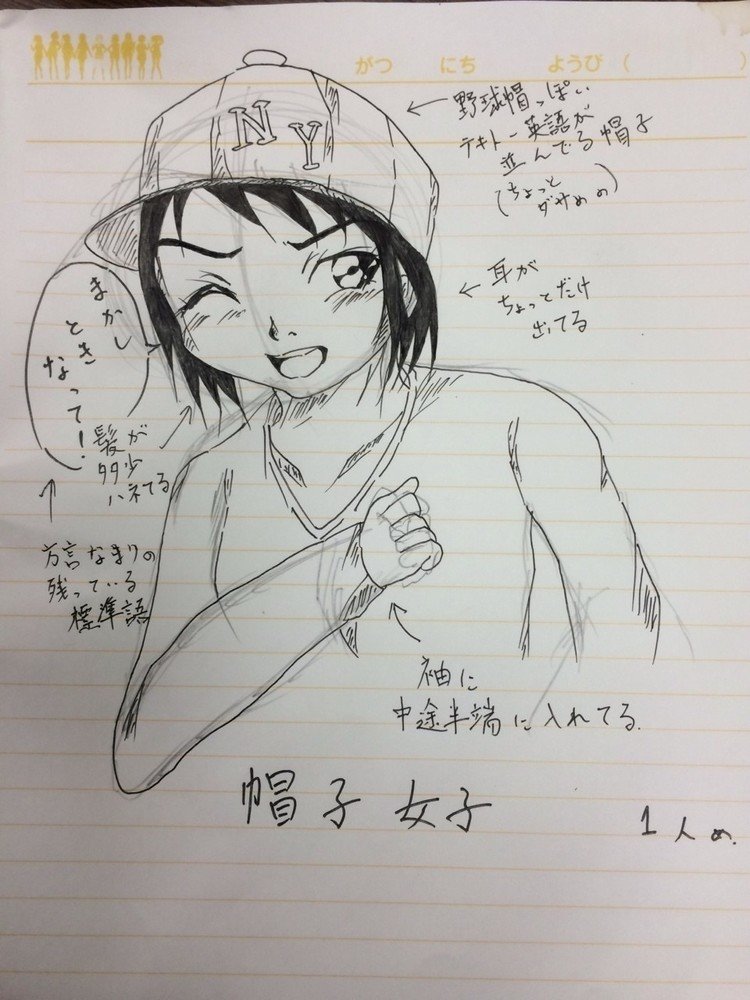 がつ にち ようび (          )
野球帽っぽい
テキトー英語が
並んでる帽子
(ちょっと
ダサめの)
NY
耳が
ちょっとだけ
出てる
まかし
とき
なって!
髪が
多少
ハネてる
方言なまりの
残っている
標準語
袖に
中途半端に入れてる.
帽子女子
1人め.